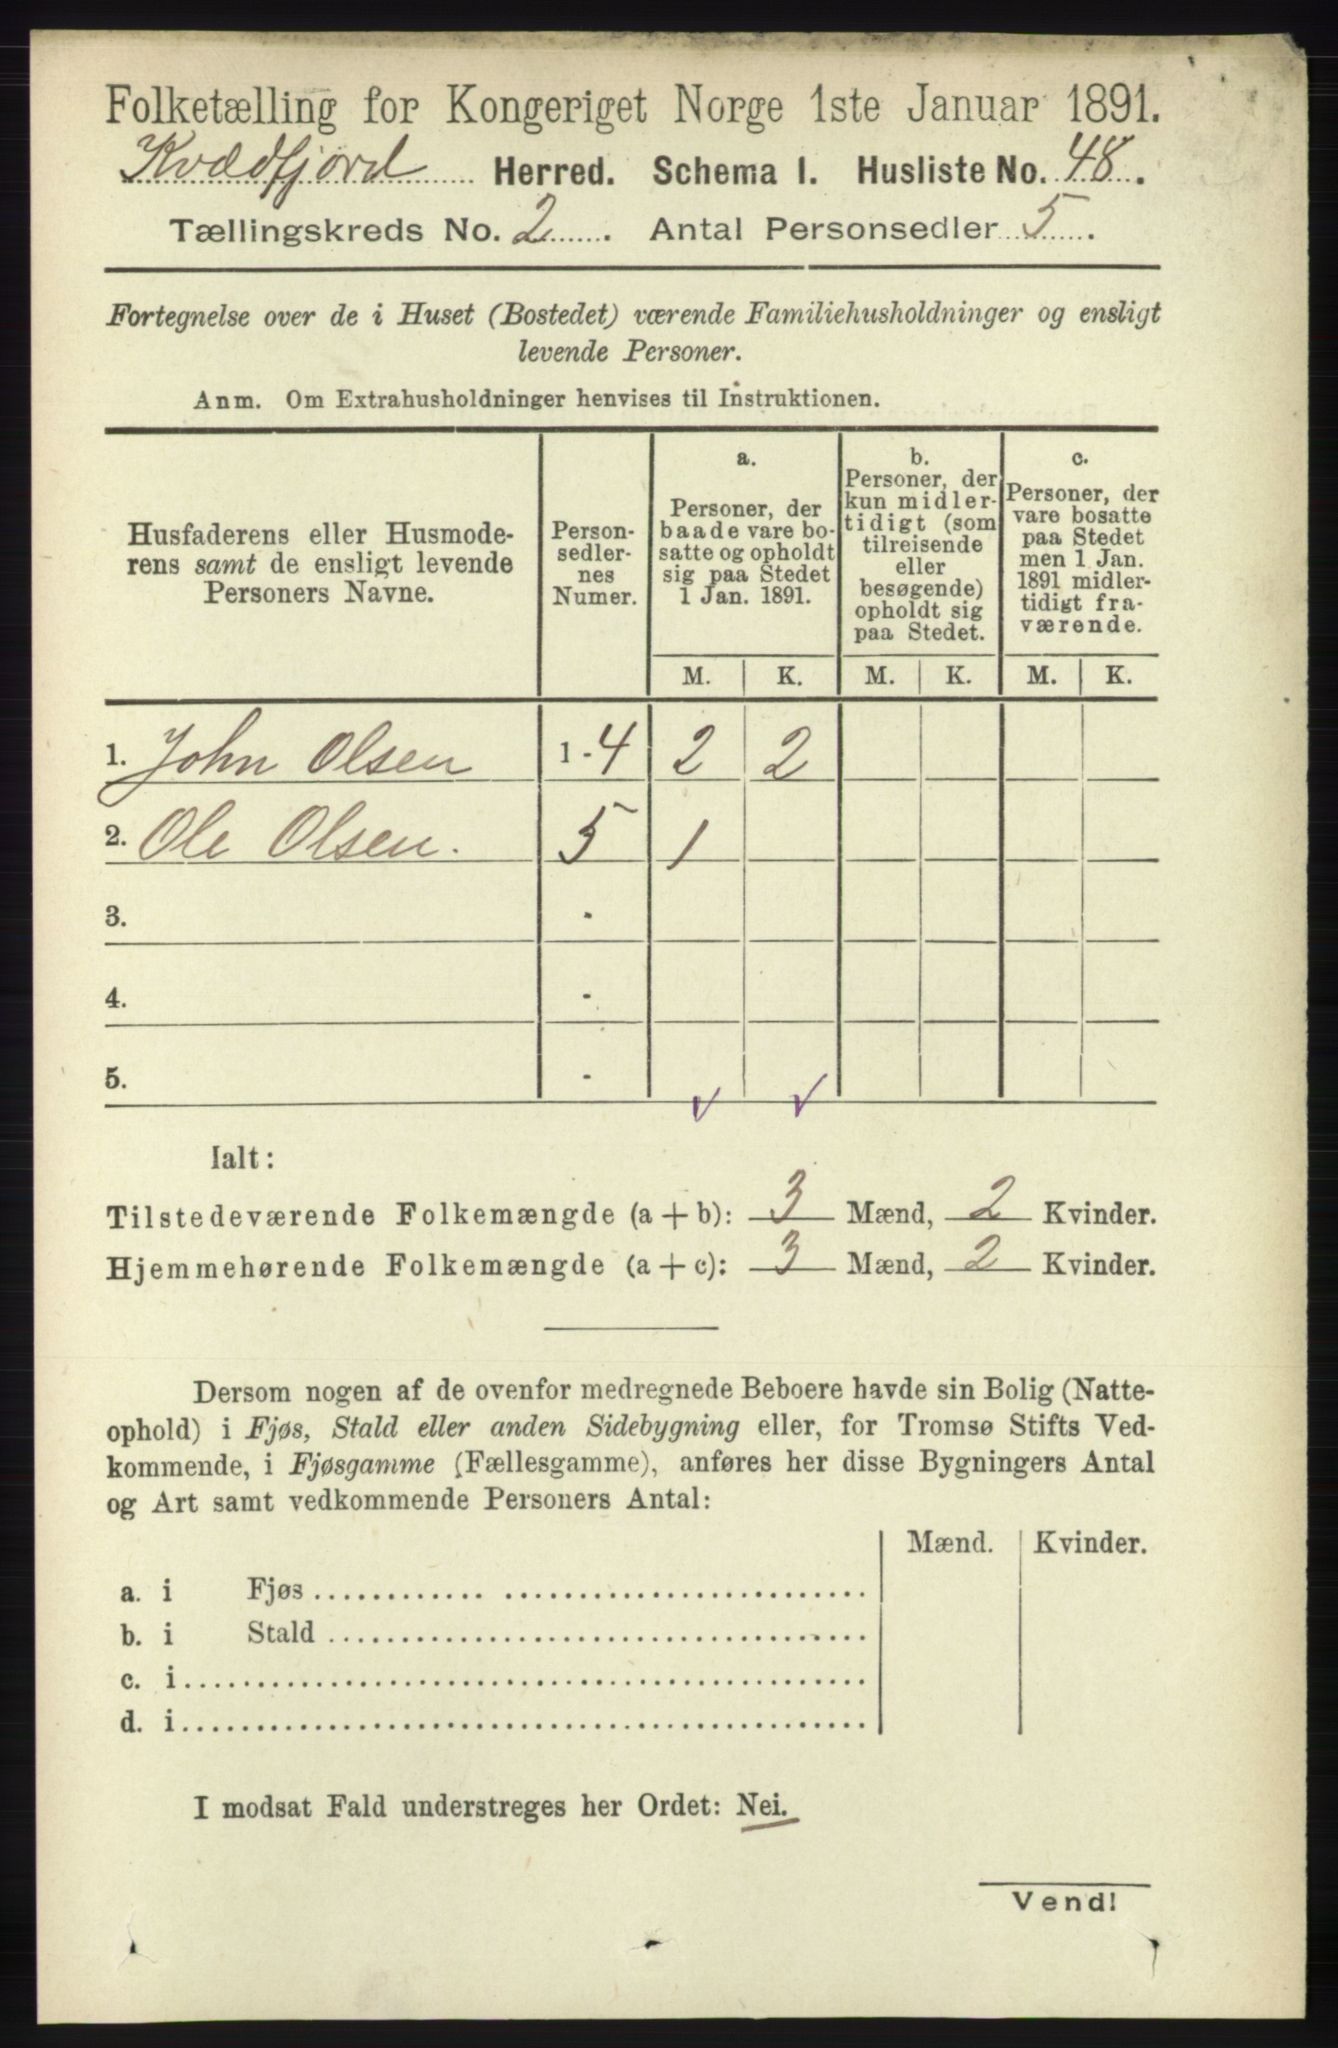 Folketælling for Kongeriget Norge 1ste Januar 1891.
Kvædfjord Herred. Schema I. Husliste No. 48.
Tællingskreds No. 2. Antal Personsedler 5.
Fortegnelse over de i Huset (Bostedet) værende Familiehusholdninger og ensligt
levende Personer.
Anm. Om Extrahusholdninger henvises til Instruktionen.
Husfaderens eller Husmode-
rens samt de ensligt levende
Personers Navne.
Person-
sedler-
nes
Numer.
a.
Personer, der
baade vare bo-
satte og opholdt
sig paa Stedet
1 Jan. 1891.
b.
Personer, der
kun midler-
tidigt (som
tilreisende
eller
besøgende)
opholdt sig
paa Stedet.
c.
Personer, der
vare bosatte
paa Stedet
men 1 Jan.
1891 midler-
tidigt fra-
værende.
M. K. M. K. M. K.
1. John Olsen 1-4 2 2
2. Ole Olsen. 5 1
3. -
4. -
5. -
Ialt:
Tilstedeværende Folkemængde (a + b): 3 Mænd, 2 Kvinder.
Hjemmehørende Folkemængde (a + c): 3 Mænd, 2 Kvinder.
Dersom nogen af de ovenfor medregnede Beboere havde sin Bolig (Natte-
ophold) i Fjøs, Stald eller anden Sidebygning eller, for Tromsø Stifts Ved-
kommende, i Fjøsgamme (Fællesgamme), anføres her disse Bygningers Antal
og Art samt vedkommende Personers Antal:
Mænd. Kvinder.
a. i Fjøs
b. i Stald
c. i
d. i
I modsat Fald understreges her Ordet: Nei.
Vend!